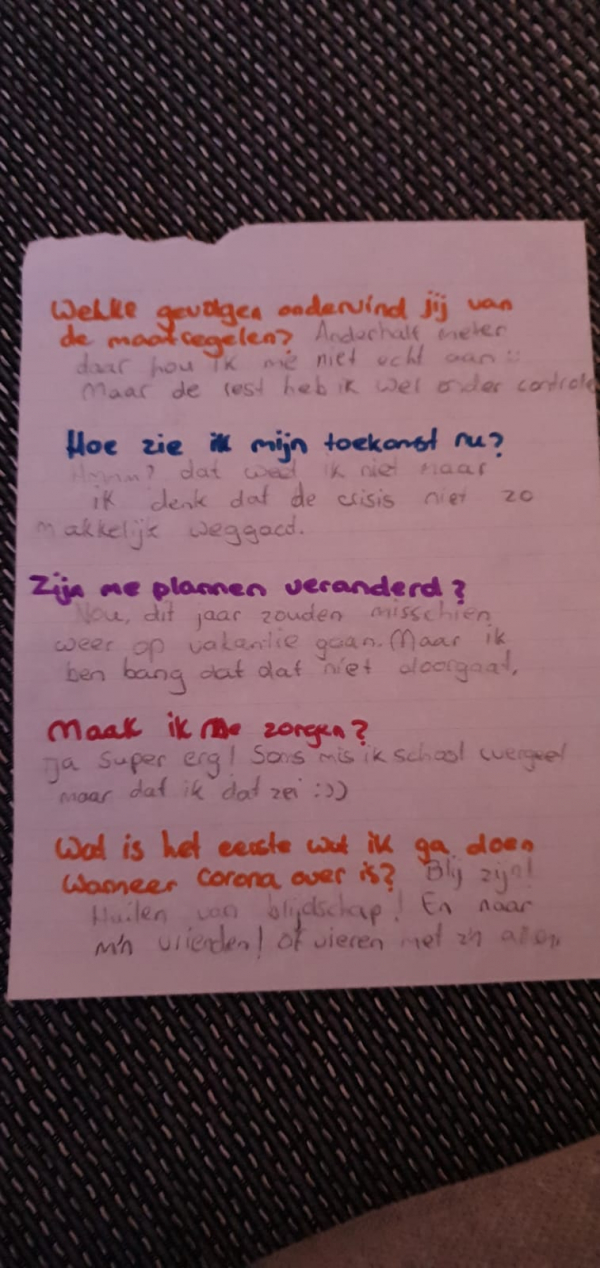 Welke gevolgen ondervind jij van
de maatregelen? Anderhalf meter
daar hou ik me niet echt aan
Maar de rest heb ik wel onder controle
Hoe zie ik mijn toekomst nu?
Hmmm? dat weet ik niet maar
ik denk dat de crisis niet zo
makkelijk weggaad.
Zijn me plannen veranderd?
Nou, dit jaar zouden misschien
weer op vakantie gaan. Maar ik
ben bang dat dat niet doorgaat.
Maak ik me zorgen?
Ja super erg! Soms mis ik school
maar dat ik dat zei :))
Wat is het eerste wat ik ga doen
wanneer corona over is? Blij zijn!
Huilen van blijdschap! En naar
m'n vrienden! of vieren met z'n allen.